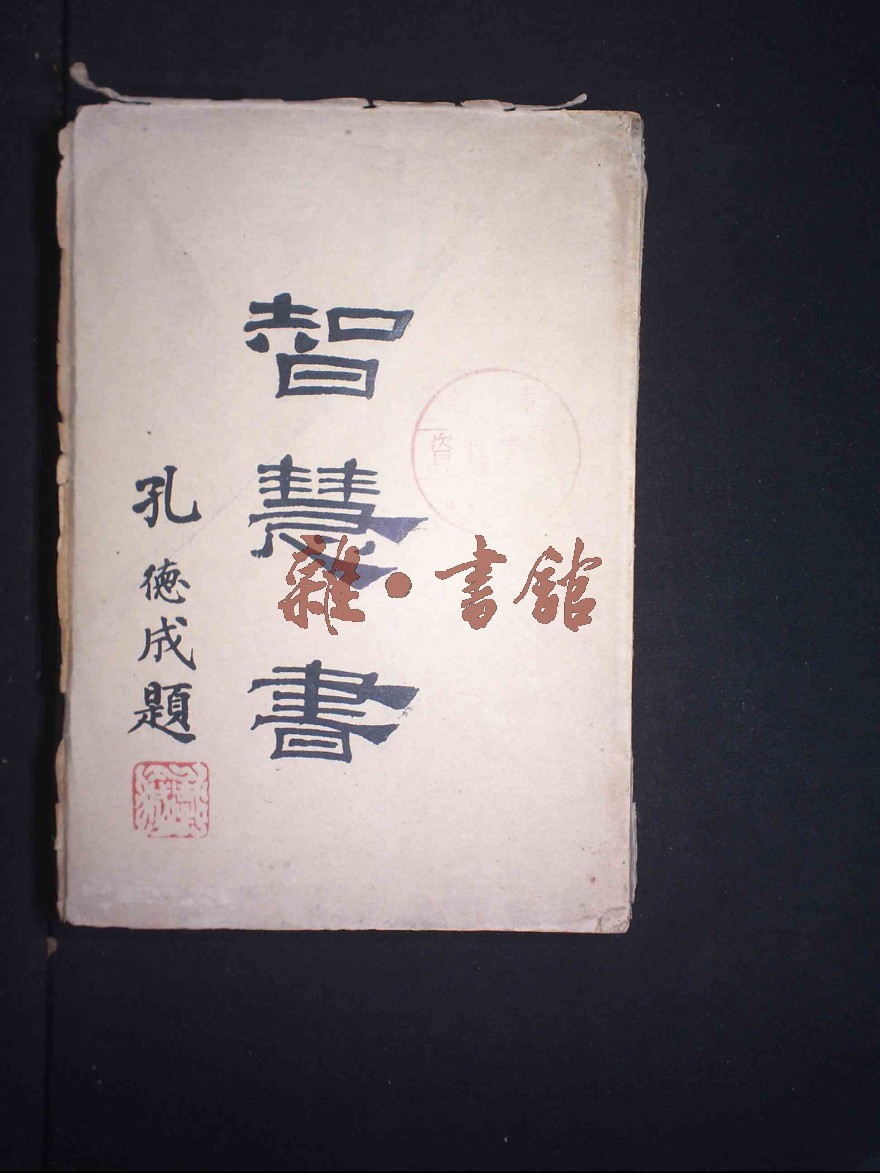 智慧書
孔德成題
雜·書館
資